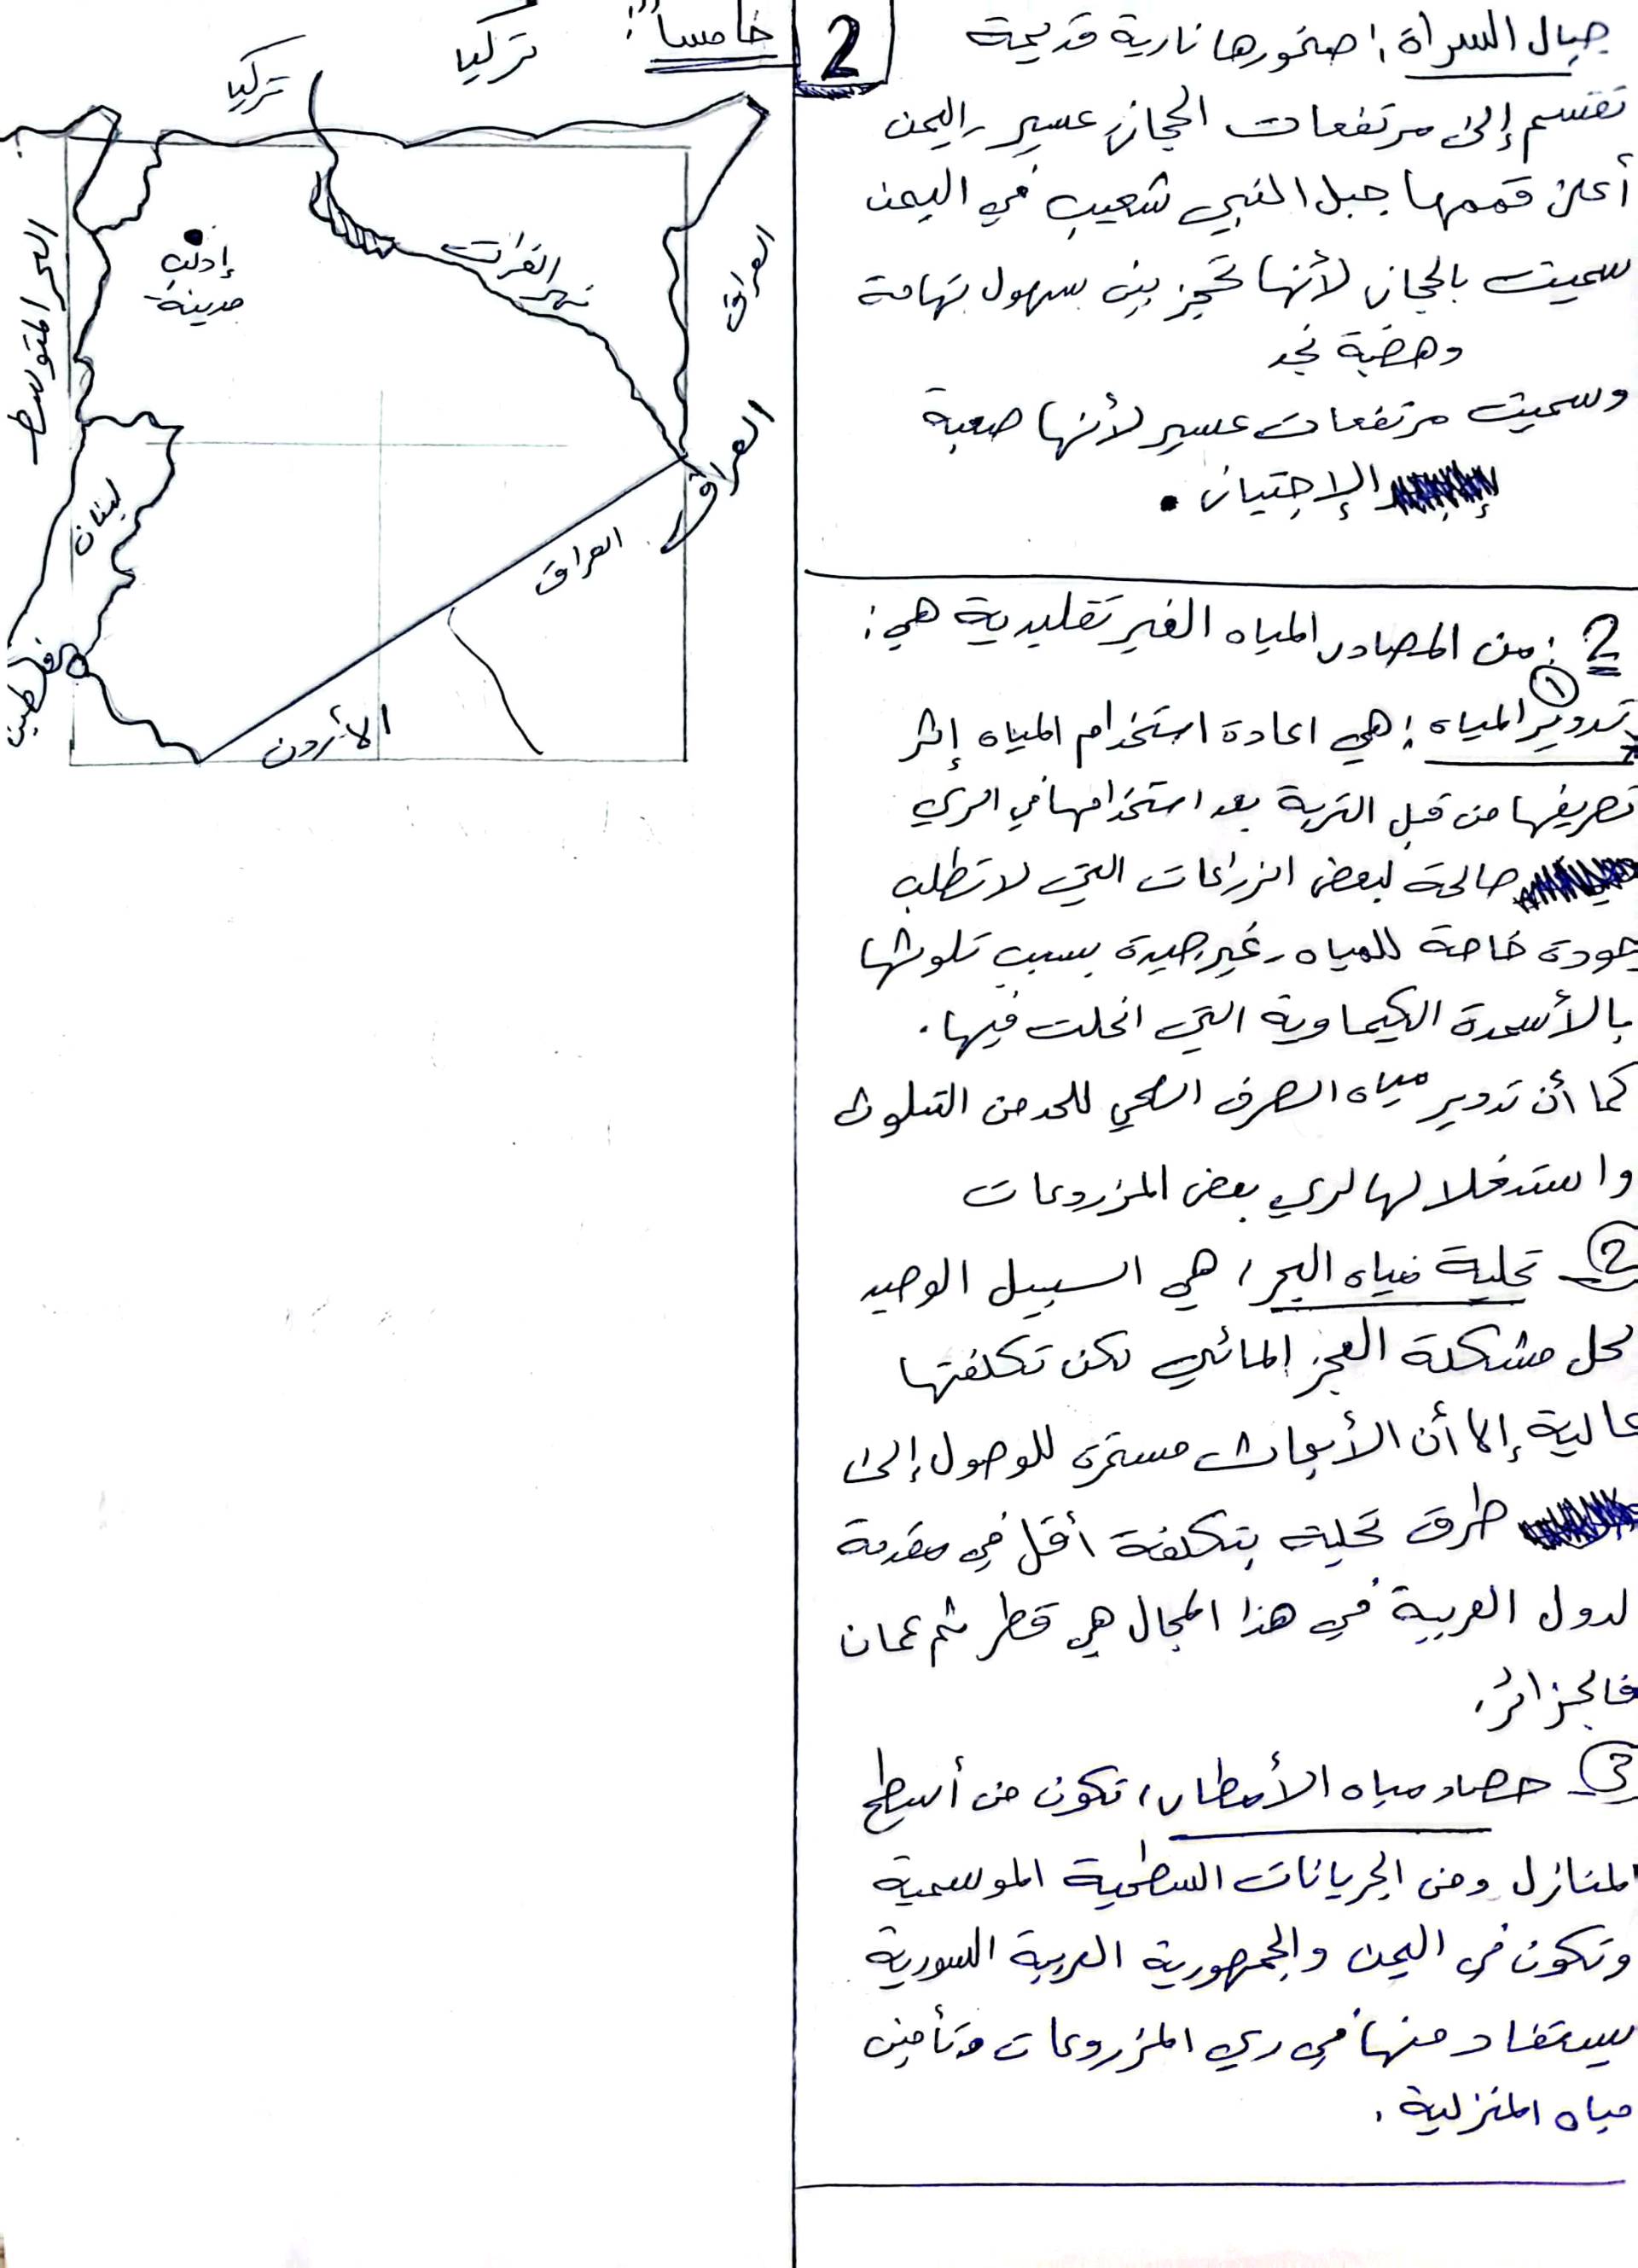 2
جبال السراة: صخورها نارية قديمة
تقسم إلى مرتفعات الحجاز، عسير، اليمن
أعلى قممها جبل النبي شعيب في اليمن
سميت بالحجاز لأنها تحجز بين سهول تهامة
وهضبة نجد
وسميت مرتفعات عسير لأنها صعبة
الإجتياز.
2: من المصادر المياه الغير تقليدية هي:
١ تدوير المياه: هي اعادة استخدام المياه إثر
تصريفها من قبل التربة بعد استخدامها في الري
صالحة لبعض الزراعات التي لا تطلب
جودة خاصة للمياه، غير جيدة بسبب تلوثها
بالأسمدة الكيماوية التي انحلت فيها.
كما أن تدوير مياه الصرف الصحي للحد من التلوث
واستغلالها لري بعض المزروعات
2 تحلية مياه البحر: هي السبيل الوحيد
لحل مشكلة العجز المائي لكن تكلفتها
عالية إلا أن الأبحاث مستمرة للوصول إلى
طرق تحلية بتكلفة أقل في مقدمة
لدول العربية في هذا المجال هي قطر ثم عمان
فالجزائر.
3 حصاد مياه الأمطار: تكون من أسطح
المنازل ومن الجريانات السطحية الموسمية
وتكون في اليمن والجمهورية العربية السورية
يستفاد منها في ري المزروعات وتأمين
مياه المنزلية.
خامساً:
تركيا
تركيا
البحر المتوسط
إدلب
مدينة
نهر الفرات
العراق
العراق
العراق
لبنان
الأردن